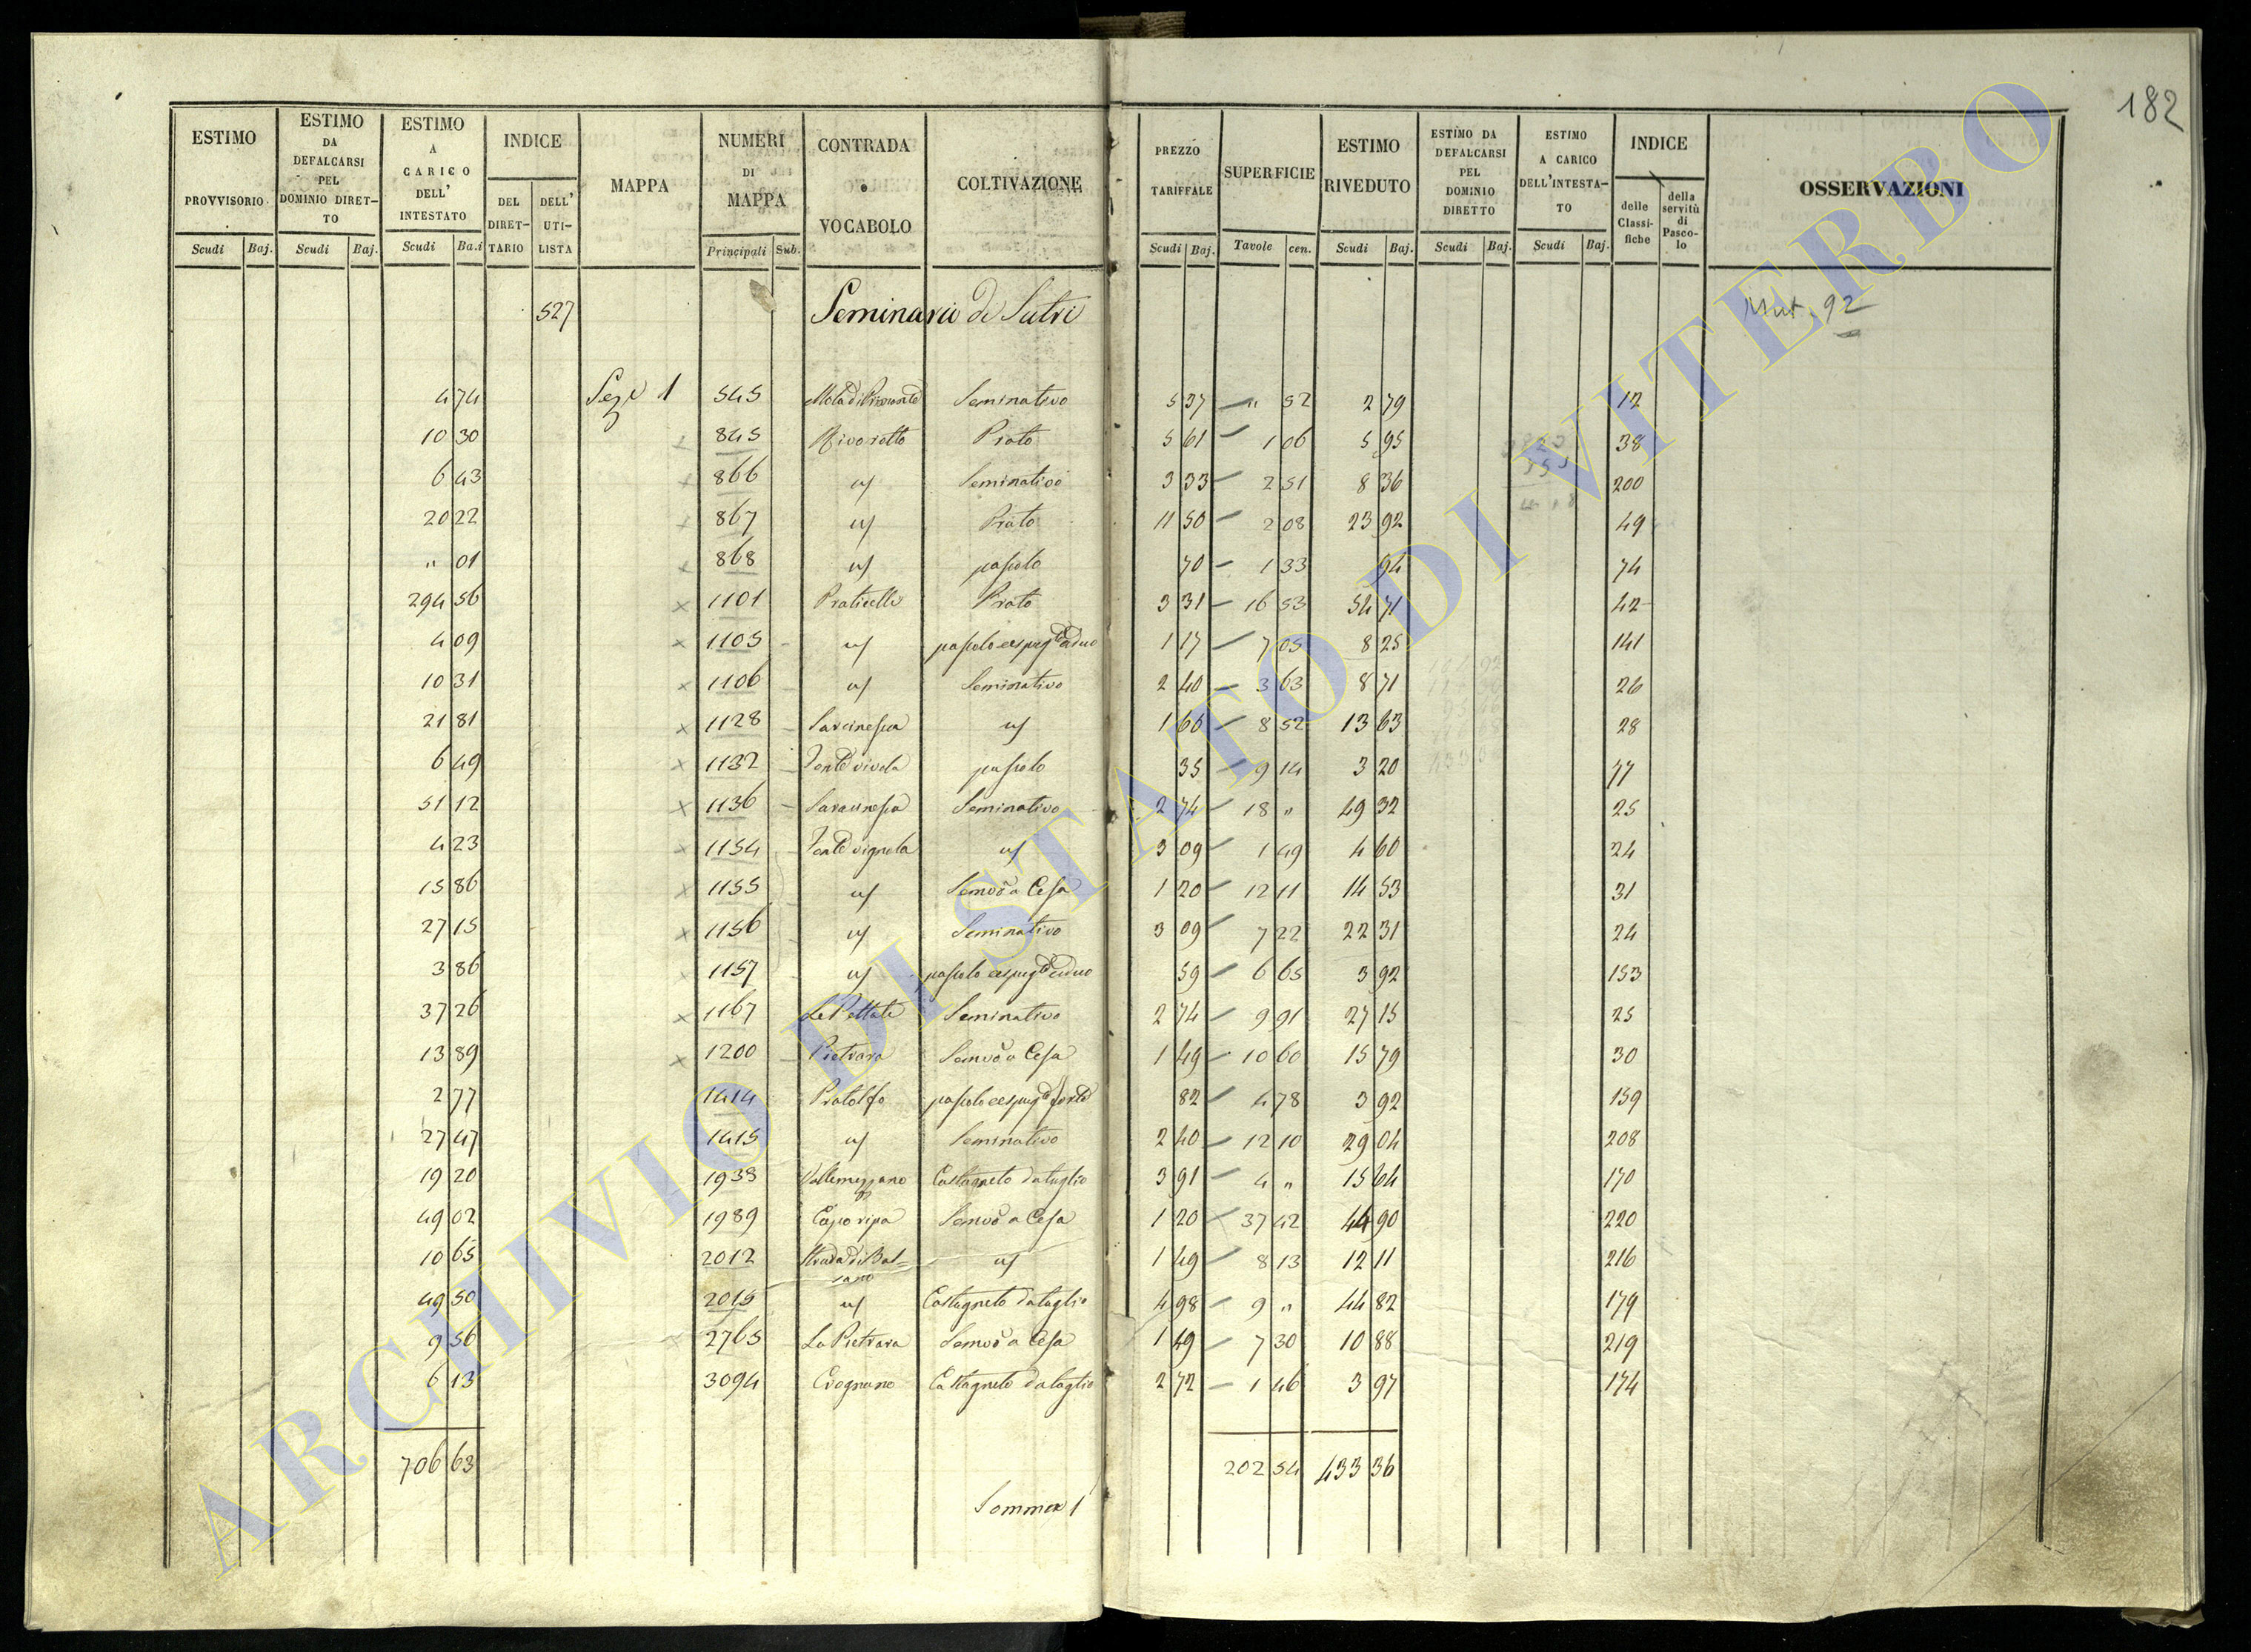 182
ESTIMO PROVVISORIO Scudi Baj.
ESTIMO DA DEFALCARSI PEL DOMINIO DIRETTO Scudi Baj.
ESTIMO A CARICO DELL' INTESTATO Scudi Ba.i
INDICE DEL DIRETTARIO DELL' UTILISTA
MAPPA
NUMERI DI MAPPA Principali Sub.
CONTRADA o VOCABOLO
COLTIVAZIONE
PREZZO TARIFFALE Scudi Baj.
SUPERFICIE Tavole cen.
ESTIMO RIVEDUTO Scudi Baj.
ESTIMO DA DEFALCARSI PEL DOMINIO DIRETTO Scudi Baj.
ESTIMO A CARICO DELL'INTESTATO Scudi Baj.
INDICE delle Classifiche della servitù di Pascolo
OSSERVAZIONI
527 Seminario di Sutri Mut. 92
4 74 Sez. 1 545 Seminativo 5 37 " 52 2 79 12
10 30 845 Rivoretto Prato 5 61 1 06 5 95 38
6 43 866 " Seminativo 3 33 2 51 8 36 200
20 22 867 " Prato 11 50 2 08 23 92 49
" 01 868 " pascolo 70 1 33 94 74
294 56 1101 Praticelli Prato 3 31 16 53 54 71 42
4 09 1105 " pascolo cespugto ceduo 1 17 7 05 8 25 141
10 31 1106 " Seminativo 2 40 3 63 8 71 26
21 81 1128 Saracinesca " 1 60 8 52 13 63 28
6 49 1132 Fonte vivola pascolo 35 9 14 3 20 77
51 12 1136 Saracinesca Seminativo 2 74 18 " 49 32 25
4 23 1154 Fonte vignola " 3 09 1 49 4 60 24
15 86 1155 " Semvo a Cesa 1 20 12 11 14 53 31
27 15 1156 " Seminativo 3 09 7 22 22 31 24
3 86 1157 " pascolo cespugto ceduo 59 6 65 3 92 153
37 26 1167 Le Pettate Seminativo 2 74 9 91 27 15 25
13 89 1200 Pietrara Semvo a Cesa 1 49 10 60 15 79 30
2 77 1414 Pratolfo pascolo cespugto forte 82 4 78 3 92 159
27 47 1415 " Seminativo 2 40 12 10 29 04 208
19 20 1933 Vallemezzano Castagneto da taglio 3 91 4 " 15 64 170
49 02 1989 Capo ripa Semvo a Cesa 1 20 37 42 44 90 220
10 65 2012 Strada di Bassano " 1 49 8 13 12 11 216
49 50 2015 " Castagneto da taglio 4 98 9 " 44 82 179
9 56 2765 La Pietrara Semvo a Cesa 1 49 7 30 10 88 219
6 13 3094 Crognano Castagneto da taglio 2 72 1 46 3 97 174
706 63 202 54 433 36
Somma 1
ARCHIVIO DI STATO DI VITERBO